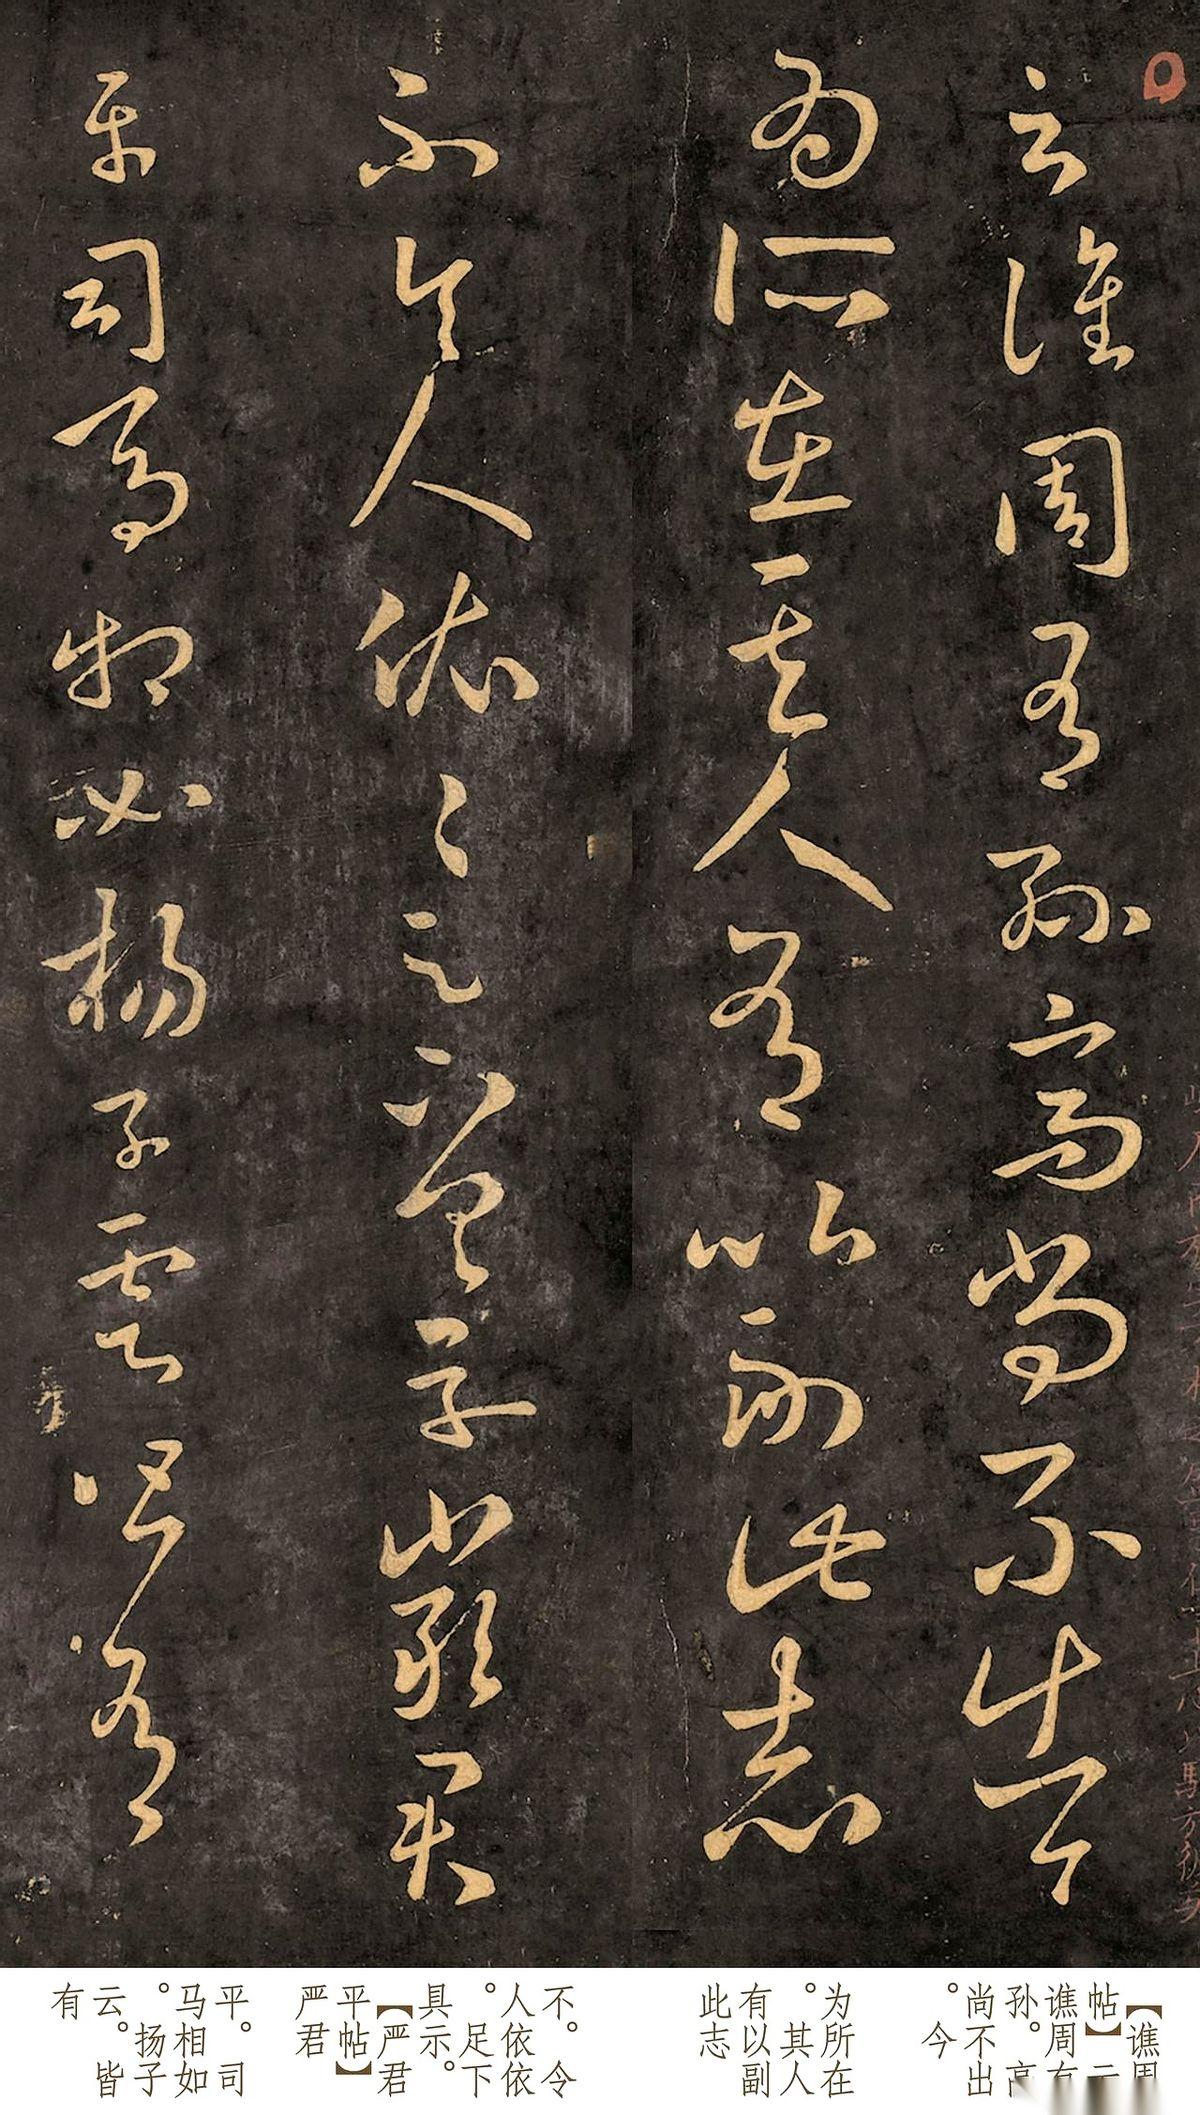 云谯周有孫高尚不出今
为所在其人有以副此志
不令人依依足下具示嚴君
平司馬相如揚子雲皆有
【谯周
帖】云
谯周有
孙。高
尚不出
。今
为所在
。其人
有以副
此志
不。令
人依依
。足下
具示。
【严君
平帖】
严君
平。司
马相如
。扬子
云。皆
有